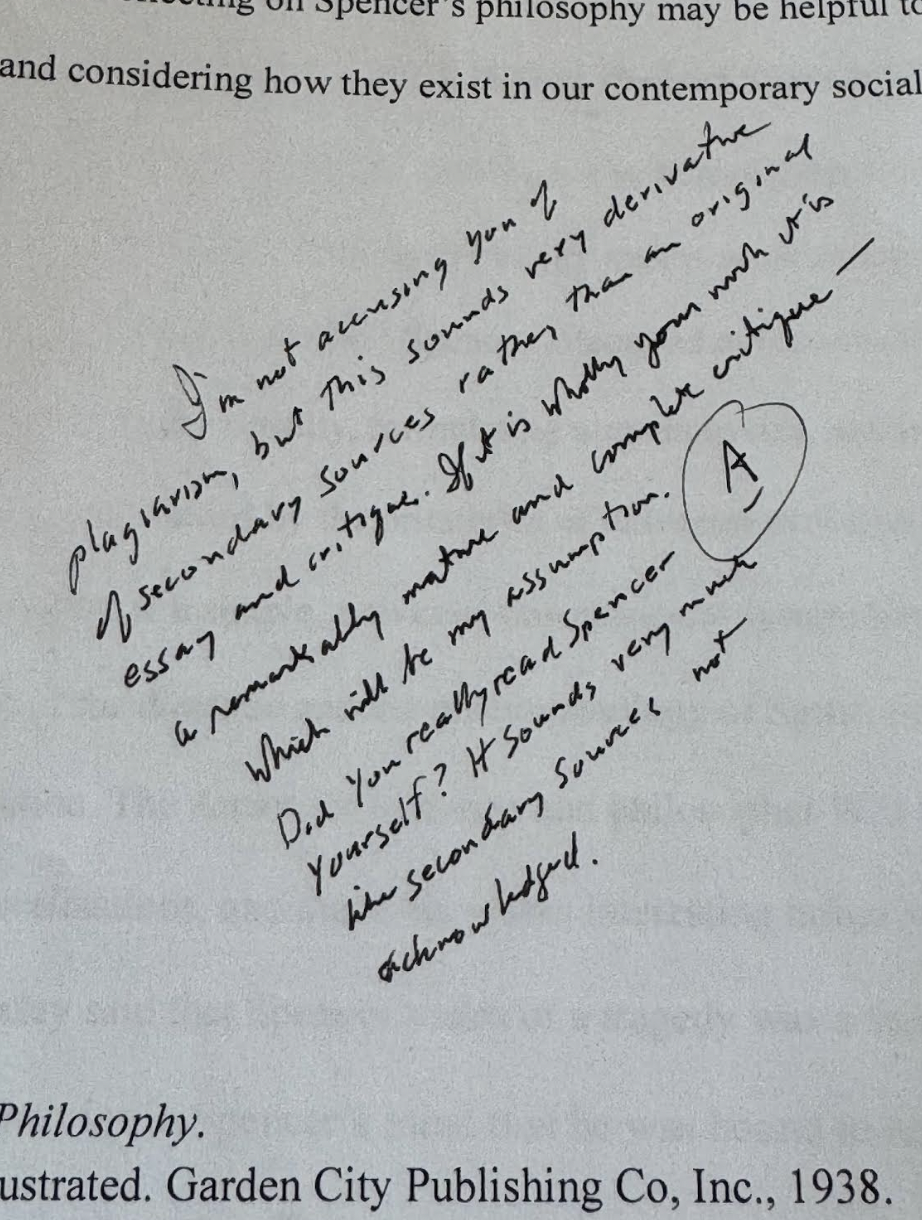 ecting on Spencer's philosophy may be helpful to
and considering how they exist in our contemporary social
I'm not accusing you of
plagiarism, but this sounds very derivative
of secondary sources rather than an original
essay and critique. If it is wholly your work it is
a remarkably mature and complete critique —
which will be my assumption.
A
Did you really read Spencer
yourself? It sounds very much
like secondary sources not
acknowledged.
Philosophy.
ustrated. Garden City Publishing Co, Inc., 1938.